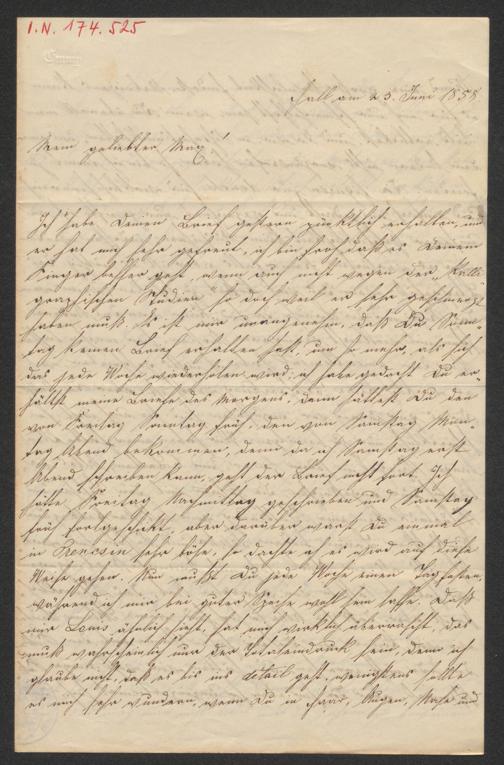 I.N. 174.525
Hall am 23. Juni 1858
Mein geliebter Max!
Ich habe Deinen Brief gestern pünktlich erhalten, und
er hat mich sehr gefreut, ich bin froh daß es Deinem
Finger besser geht, wenn auch nicht wegen der Kalli-
graphischen Studien so doch weil er sehr geschmerzt
haben muß. Es ist mir unangenehm, daß Du Sonn-
tag keinen Brief erhalten hast, um so mehr, als sich
das jede Woche wiederholen wird; ich habe gedacht Du er-
hältst meine Briefe des Morgens, dann hättest Du den
von Freitag Sonntag früh, den von Samstag Mon-
tag Abend bekommen, denn da ich Samstag erst
Abend schreiben kann, geht der Brief nicht fort. Ich
hätte Freitag Nachmittag geschrieben und Samstag
früh fortgeschickt, aber darüber warst Du einmal
in sehr böse, so dachte ich es wird auf diese
Weise gehen. Nun mußt Du jede Woche einen Tag fasten,
während ich mir bei guter Speise wohl sein lasse. Daß
mir Louis ähnlich sieht, hat mich wirklich überrascht, das
muß warscheinlich nur der Totaleindruck sein, denn ich
glaube nicht, daß es bis ins detail geht, wenigstens sollte
es mich sehr wundern, wenn Du in Haar, Augen, Nase und